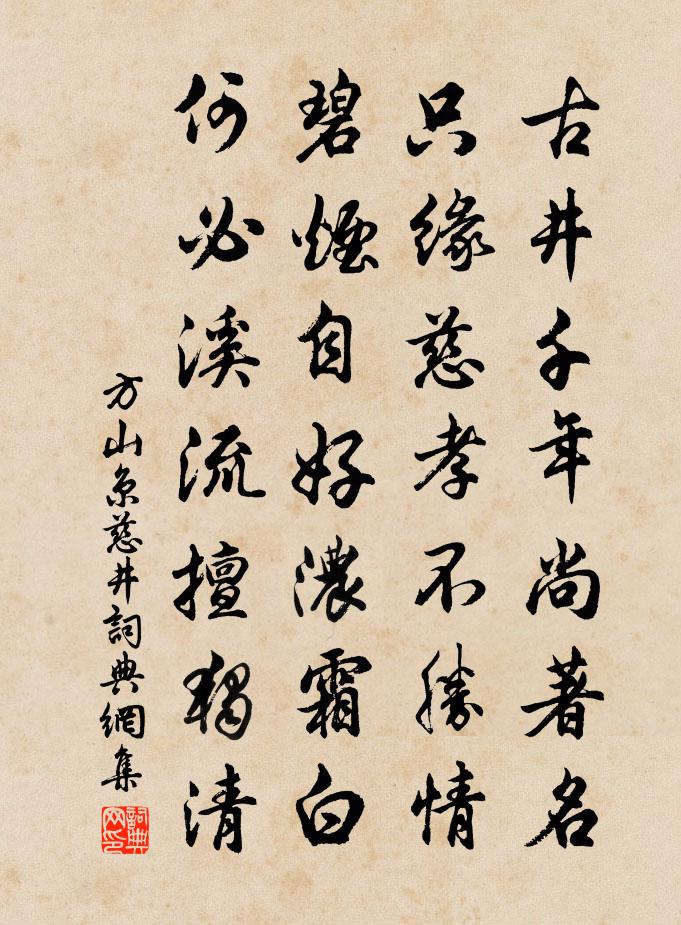 古井千年尚著名
只緣慈孝不勝情
碧煙自好濃霜白
何必溪流擅獨清
方山京慈井詞典網集
詞典網印